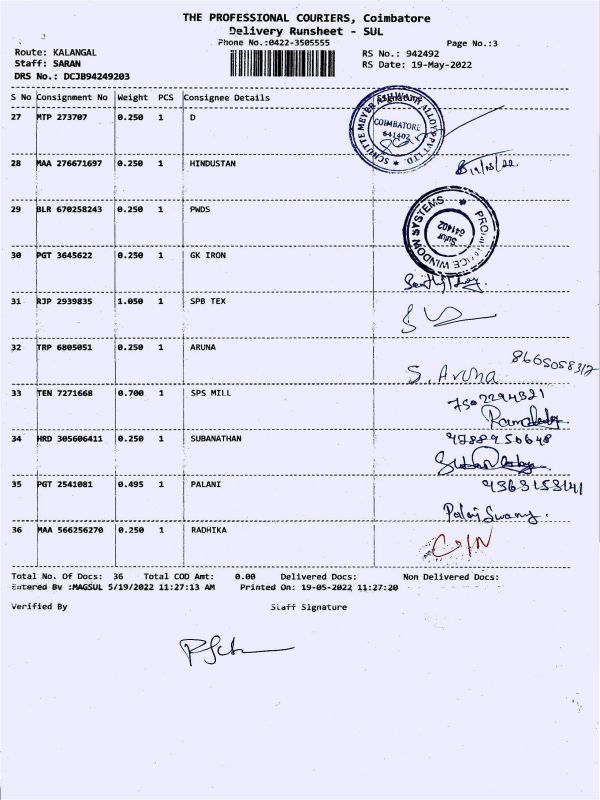 THE PROFESSIONAL COURIERS, Coimbatore
Delivery Runsheet - SUL
Phone No.:0422-3505555
Page No.:3
Route: KALANGAL
RS No.: 942492
Staff: SARAN
RS Date: 19-May-2022
DRS No.: DCJB94249203
S No Consignment No Weight PCS Consignee Details
27 MTP 273707 0.250 1 D
COIMBATORE
641402
28 MAA 276671697 0.250 1 HINDUSTAN
29 BLR 670258243 0.250 1 PWDS
WINDOW SYSTEMS
Sulur
641402
30 PGT 3645622 0.250 1 GK IRON
31 RJP 2939835 1.050 1 SPB TEX
32 TRP 6805051 0.250 1 ARUNA
8665058312
S. Aruna
33 TEN 7271668 0.700 1 SPS MILL
7502294321
34 HRD 305606411 0.250 1 SUBANATHAN
9788950648
35 PGT 2541081 0.495 1 PALANI
9363153141
Palani Swamy.
36 MAA 566256270 0.250 1 RADHIKA
Total No. Of Docs: 36 Total COD Amt: 0.00 Delivered Docs: Non Delivered Docs:
Entered By :MAGSUL 5/19/2022 11:27:13 AM Printed On: 19-05-2022 11:27:20
Verified By Staff Signature